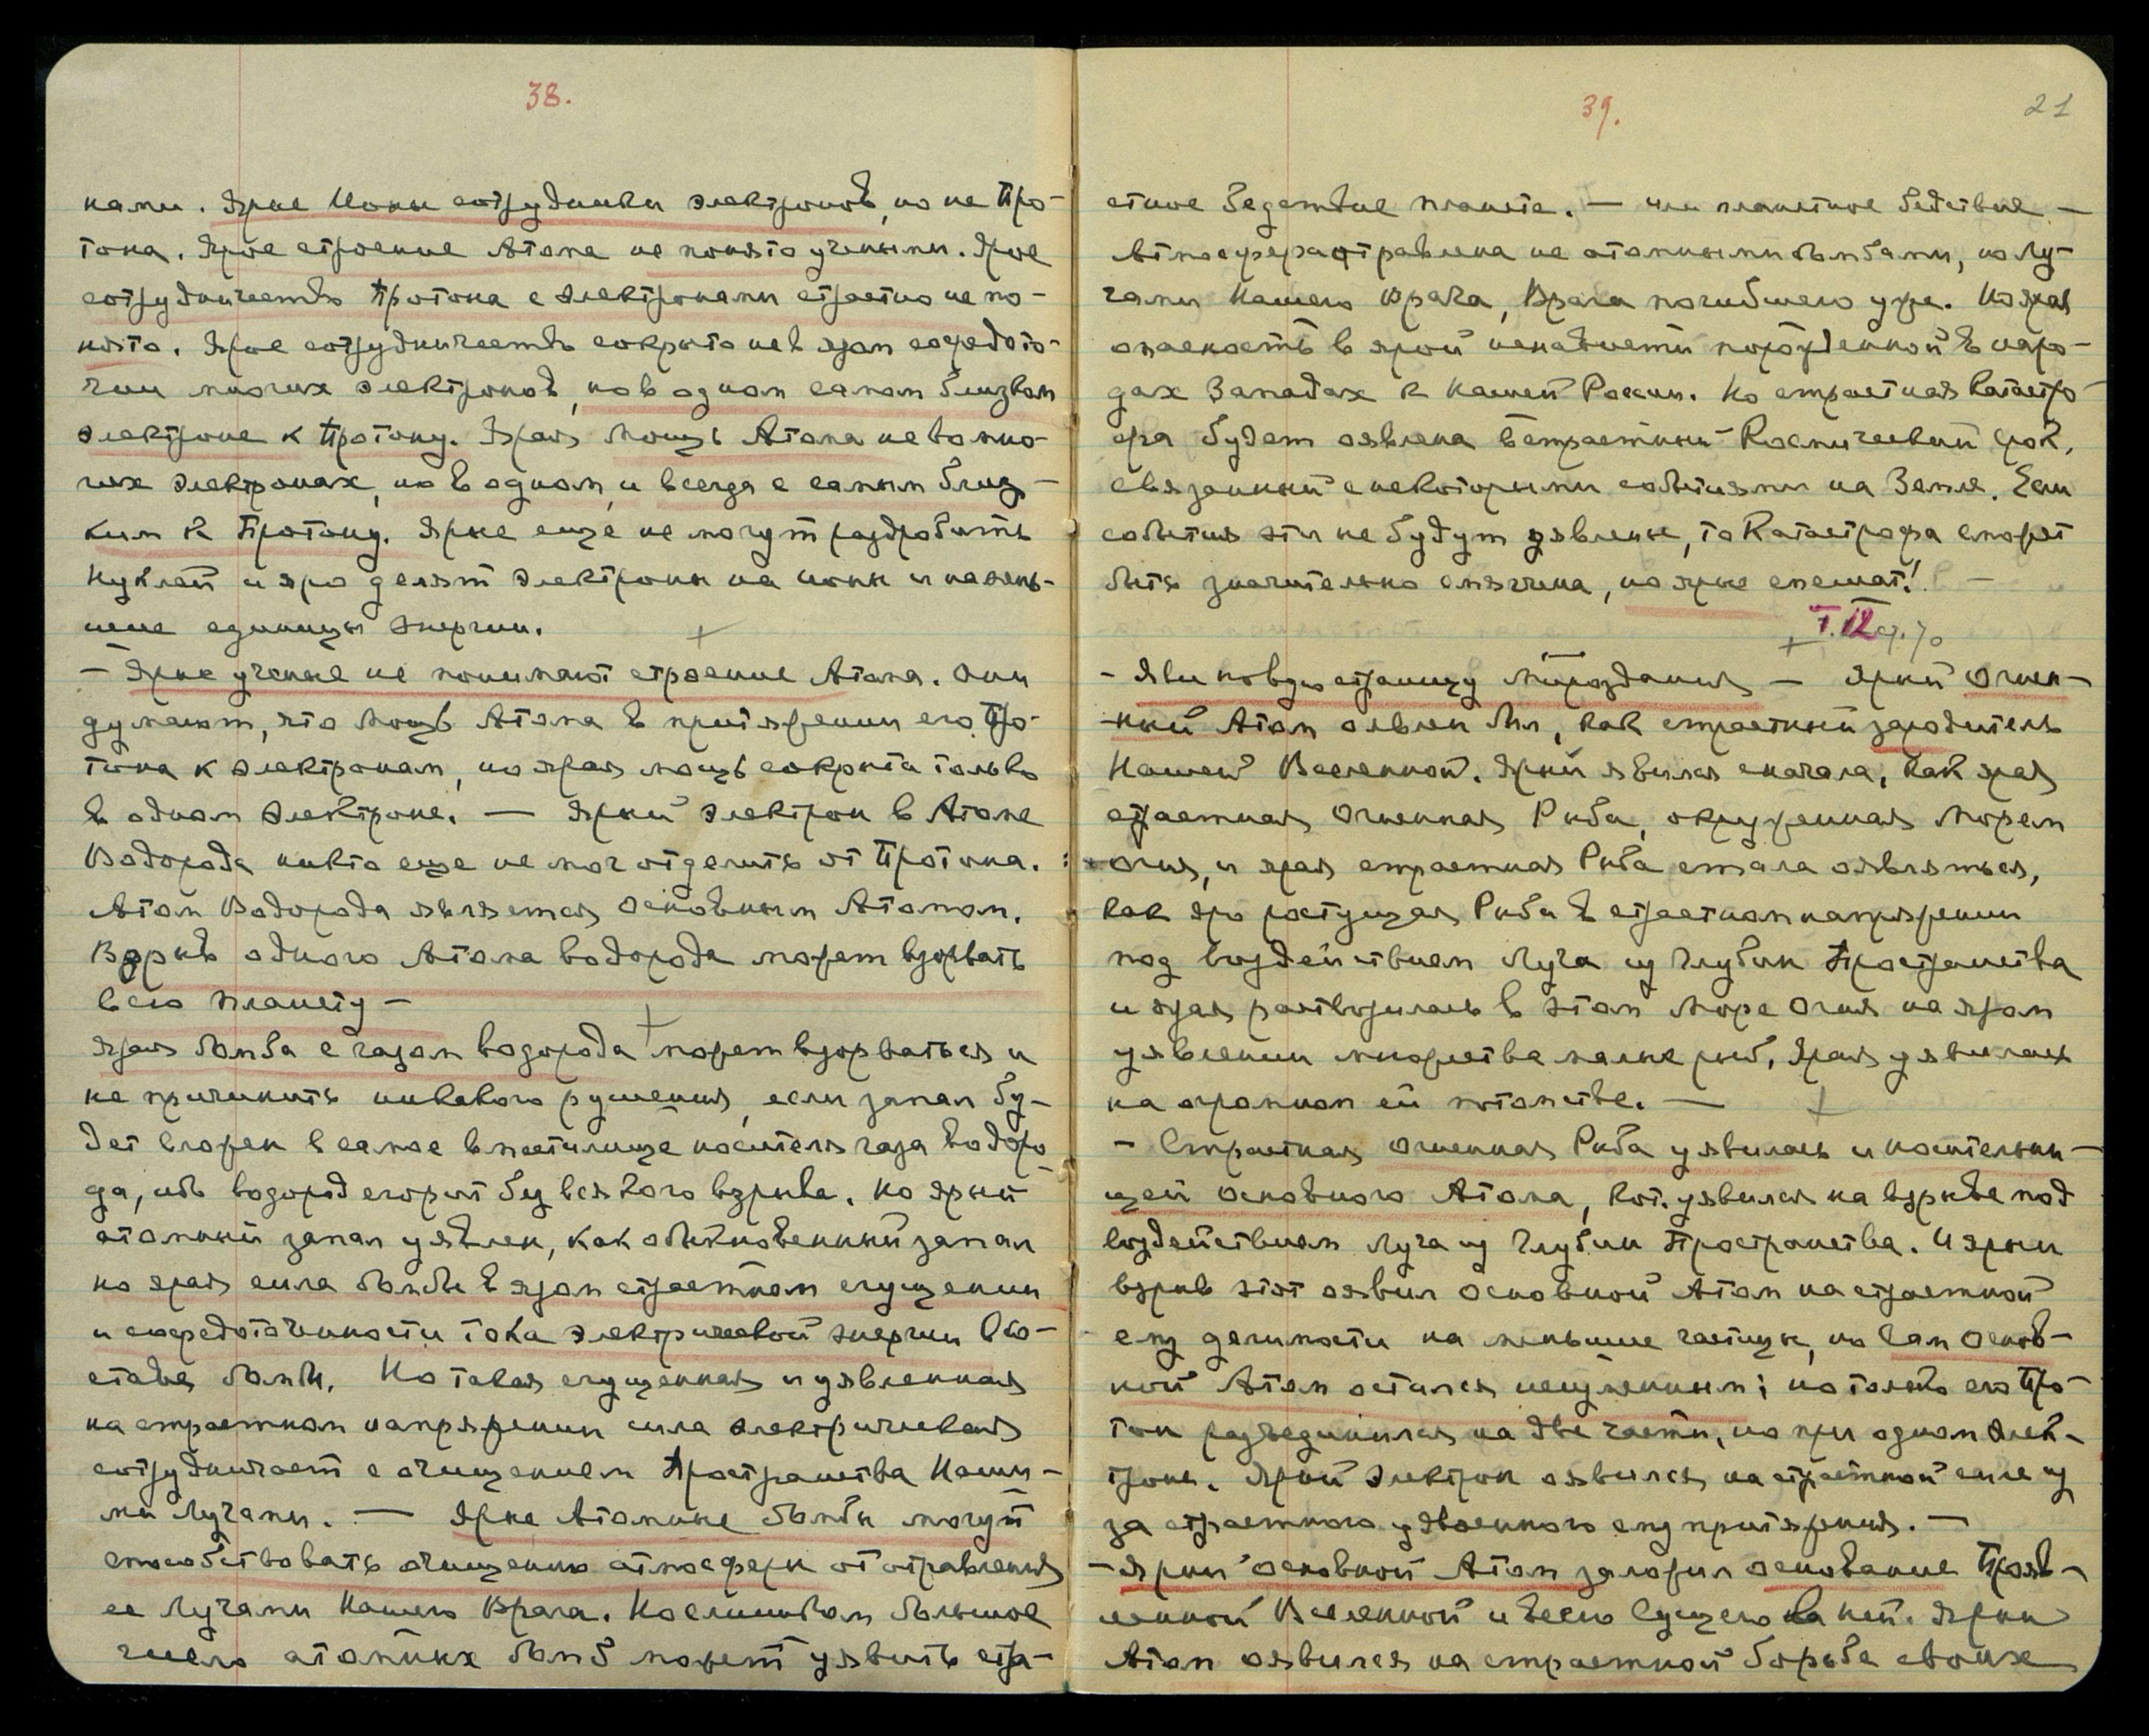 38.
нами. Ярые Ионы сотрудники электронов, но не Про-
тона. Ярое строение Атома не понято учеными. Ярое
сотрудничество Протона с Электронами страстно не по-
нято. Ярое сотрудничество сокрыто не в яром сосредото-
чии многих электронов, но в одном самом близком
электроне к Протону. Ярая Мощь Атома не во мно-
гих электронах, но в одном, и всегда с самым близ-
ким к Протону. Ярые еще не могут раздробить
Нуклей и яро делят электроны на ионы и мень-
шие единицы энергии.
— Ярые ученые не понимают строение Атома. Они
думают, что Мощь Атома в притяжении его Про-
тона к электронам, но ярая мощь сокрыта только
в одном Электроне. — Ярый Электрон в Атоме
Водорода никто еще не мог отделить от Протона.
Атом Водорода является Основным Атомом.
Взрыв одного Атома водорода может взорвать
всю планету —
Ярая бомба с газом водорода может взорваться и
не причинить никакого рушения, если запал бу-
дет вложен в самое вместилище носителя газа водоро-
да, ибо водород сгорит без всякого взрыва. Но ярый
атомный запал уявлен, как обыкновенный запал
но ярая сила бомбы в яром страстном сгущении
и сосредоточенности тока электрической энергии в со-
ставе бомбы. Но такая сгущенная и уявленная
на страстном напряжении сила электрическая
сотрудничает с очищением Пространства Наши-
ми Лучами. — Ярые Атомные бомбы могут
способствовать очищению атмосферы от отравления
ее Лучами Нашего Врага. Но слишком большое
число атомных бомб может уявить стра-
39.
21
стное бедствие планете. — или планетное бедствие —
Атмосфера отравлена не атомными бомбами, но Лу-
чами Нашего Врага, Врага погибшего уже. Но ярая
опасность в ярой ненависти порожденной в наро-
дах Запада к Нашей России. Но страстная Катастро-
фа будет оявлена в страстный Космический срок,
связанный с некоторыми событиями на Земле. Если
события эти не будут уявлены, то Катастрофа может
быть значительно смягчена, но ярые спешат! —
— Яви новую страницу Мироздания — Ярый Огнен-
ный Атом оявлен был, как страстный зародитель
Нашей Вселенной. Ярый явился сначала, как ярая
страстная Огненная Рыба, окруженная Морем
Огня, и ярая страстная Рыба стала оявляться,
как яро растущая Рыба в страстном напряжении
под воздействием Луча из Глубин Пространства
и ярая растворилась в этом Море Огня на яром
уявлении множества малых рыб. Ярая уявилась
на огромном ей потомстве. —
— Страстная Огненная Рыба уявилась и носительни-
цей Основного Атома, кот. уявился на взрыве под
воздействием Луча из Глубин Пространства. И ярый
взрыв этот оявил Основной Атом на страстной
ему делимости на меньшие частицы, но Сам Основ-
ной Атом остался неизменным; но только его Про-
тон разъединился на две части, но при одном Элек-
троне. Ярый Электрон оявился на страстной силе из
за страстного удвоенного ему притяжения. —
— Ярый Основной Атом заложил основание Прояв-
ленной Вселенной и Всего Сущего на ней. Ярый
Атом оявился на страстной борьбе своих